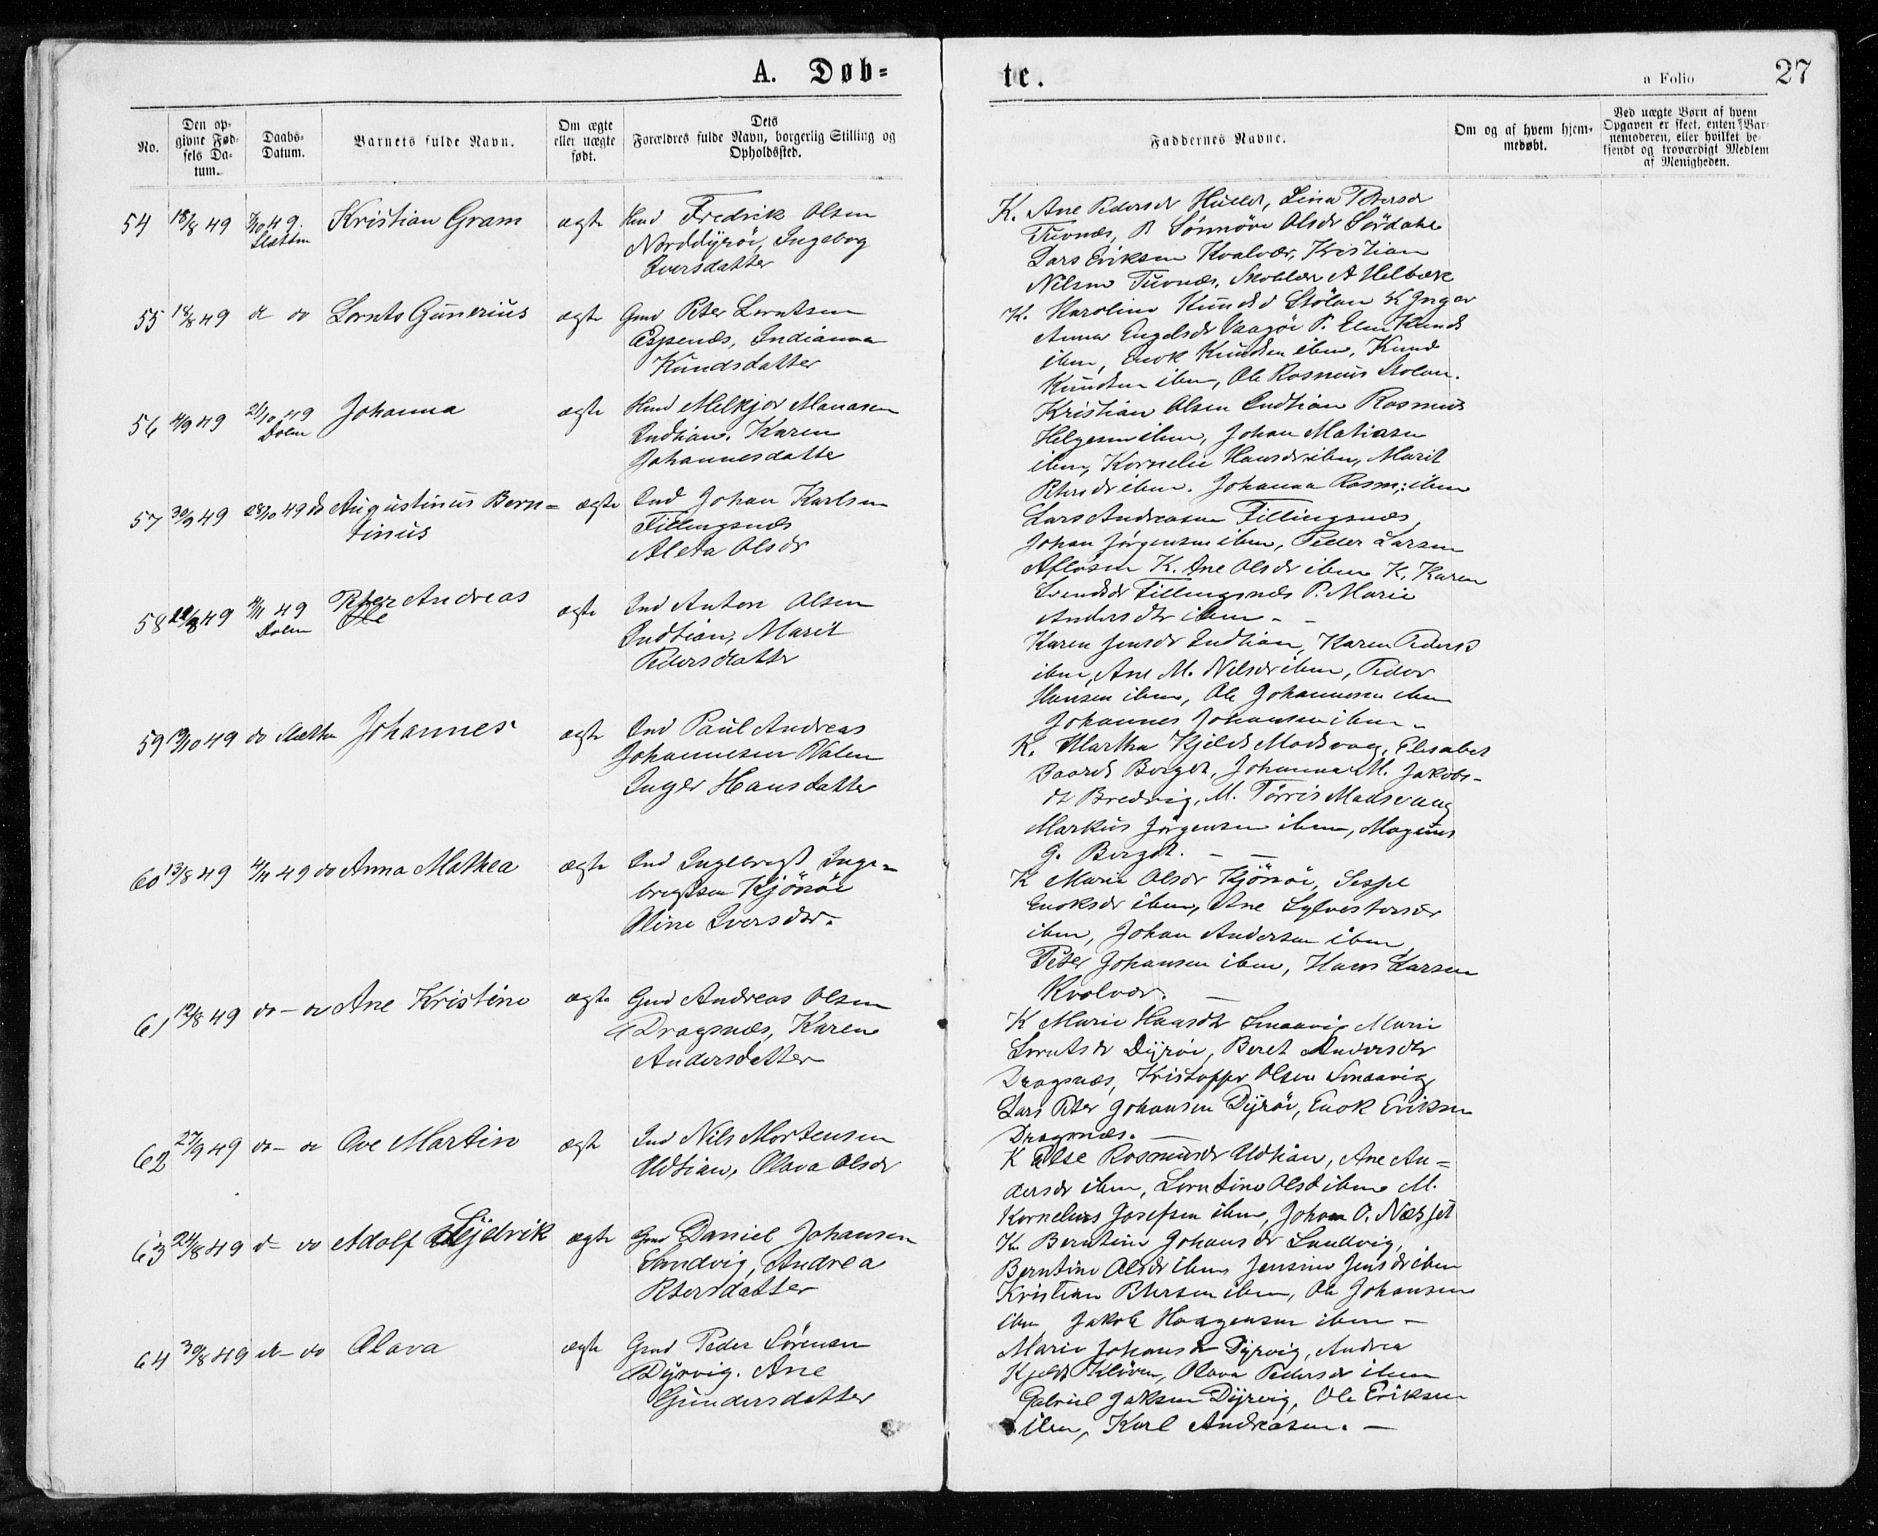 A. Døb-
te.
a Folio 27
No.
Den op-
givne Fød-
sels Da-
tum.
Daabs-
Datum.
Barnets fulde Navn.
Om ægte
eller uægte
født.
Dets
Forældres fulde Navn, borgerlig Stilling og
Opholdssted.
Faddernes Navne.
Om og af hvem hjem-
medøbt.
Ved uægte Børn af hvem
Opgaven er skeet, enten Bar-
nemoderen, eller hvilket be-
kjendt og troværdigt Medlem
af Menigheden.
54 18/8 49 Kristian Gram ægte Fredrik Olsen
Norddyrøi, Ingebog
Iversdatter
K. Ane Pedersdr Lina Petersdr
Sønnøve Olsdr
Lars Eriksen Kvalvær, Kristian
Nilsen
55 18/8 49 do Lornts Gunerius ægte Gmd Peter Lorntsen
Espenæs, Indianna
Knudsdatter
K. Karoline Knudsd Stølan
Anna Engelsdr Vaagøi P. Elen Knuds
iben, Enok Knudsen iben, Knud
Knudsen iben, Ole Rasmus Stolan.
56 4/9 49 21/10 49
Dolm
Johanna ægte Melkjor Manasen
Undtian, Karen
Johannesdatter
Kristian Olsen Undtian Rasmus
Helgesen iben, Johan Matiasen
iben, Kornelie Hansdr iben, Marit
Petersdr iben. Johanna Rasm: iben
57 30/9 49 28/10 49 do Augustinus Bern-
tinus
ægte Ind Johan Karlsen
Fillingsnæs
Aleta Olsdr
Lars Andreasen Fillingsnæs,
Johan Jørgensen iben, Peder Larsen
Afløsen K. Ane Olsdr iben K. Karen
Svendsdr Fillingsnæs P. Marie
Andersdtr iben - -
58 49 4/11 49
Dolm
Peter Andreas
Ole
ægte Ind Anton Olsen
Undtian, Marit
Pedersdatter
Karen Jensdr Undtian, Karen Pedersd
iben, Ane M. Nilsdr iben, Peder
Hansen iben, Ole Johannesen iben
Johannes Johansen iben -
59 19/10 49 do Johannes ægte Ind Paul Andreas
Johannesen Valen
Inger Hansdatter
K. Martha Kjelds Madsvaag, Elisabet
Baards Borget, Johanna M. Jakobs-
dt Bredvig, M. Tørris Madsvaag
Markus Jørgensen iben, Magnus
G. Borget. - -
60 13/8 49 4/11 49 do Anna Mathea ægte Ind Ingebrigt Inge-
brigtsen Kjønøi
Oline Iversdr.
K Marie Olsdr Kjønøi, Seppe
Enoksdr iben, Ane Sylvestersdr
iben, Johan Andersen iben,
Peter Johansen iben, Hans Larsen
Kvalvær. -
61 12/8 49 do - do Ane Kristine ægte Gmd Andreas Olsen
Dragsnæs, Karen
Andersdatter
K Marie Hansdtr Smaavig Marie
Lorntsdr Dyrøi, Beret Andersdtr
Dragsnæs, Kristoffer Olsen Smaavig
Lars Peter Johansen Dyrøi, Enok Eriksen
Dragsnæs. -
62 27/9 49 do - do Ove Martin ægte Ind Nils Mortensen
Udtian, Olava Olsdr
K Else Rasmusdr Udtian, Ane An-
dersdr iben, Lorntine Olsd iben M.
Kornelius Josefsen iben, Johan O. Næsset
63 24/8 49 do - do Adolf Fjelvik ægte Gmd Daniel Johansen
Sandvig, Andrea
Petersdatter
K. Berntine Johansdr Sandvig,
Berntine Olsdr iben Jensine Jensdr iben
Kristian Petersen iben, Ole Johansen
iben Jakob Haagensen iben -
64 30/8 49 do - do Olava ægte Gmd Peder Sørensen
Dyrvig. Ane
Gundersdatter
Marie Johansdr Dyrvig, Andrea
Kjelds Kløven, Olava Pedersdr iben
Gabriel Jaksen Dyrvig, Ole Eriksen
iben, Karl Andreasen. -